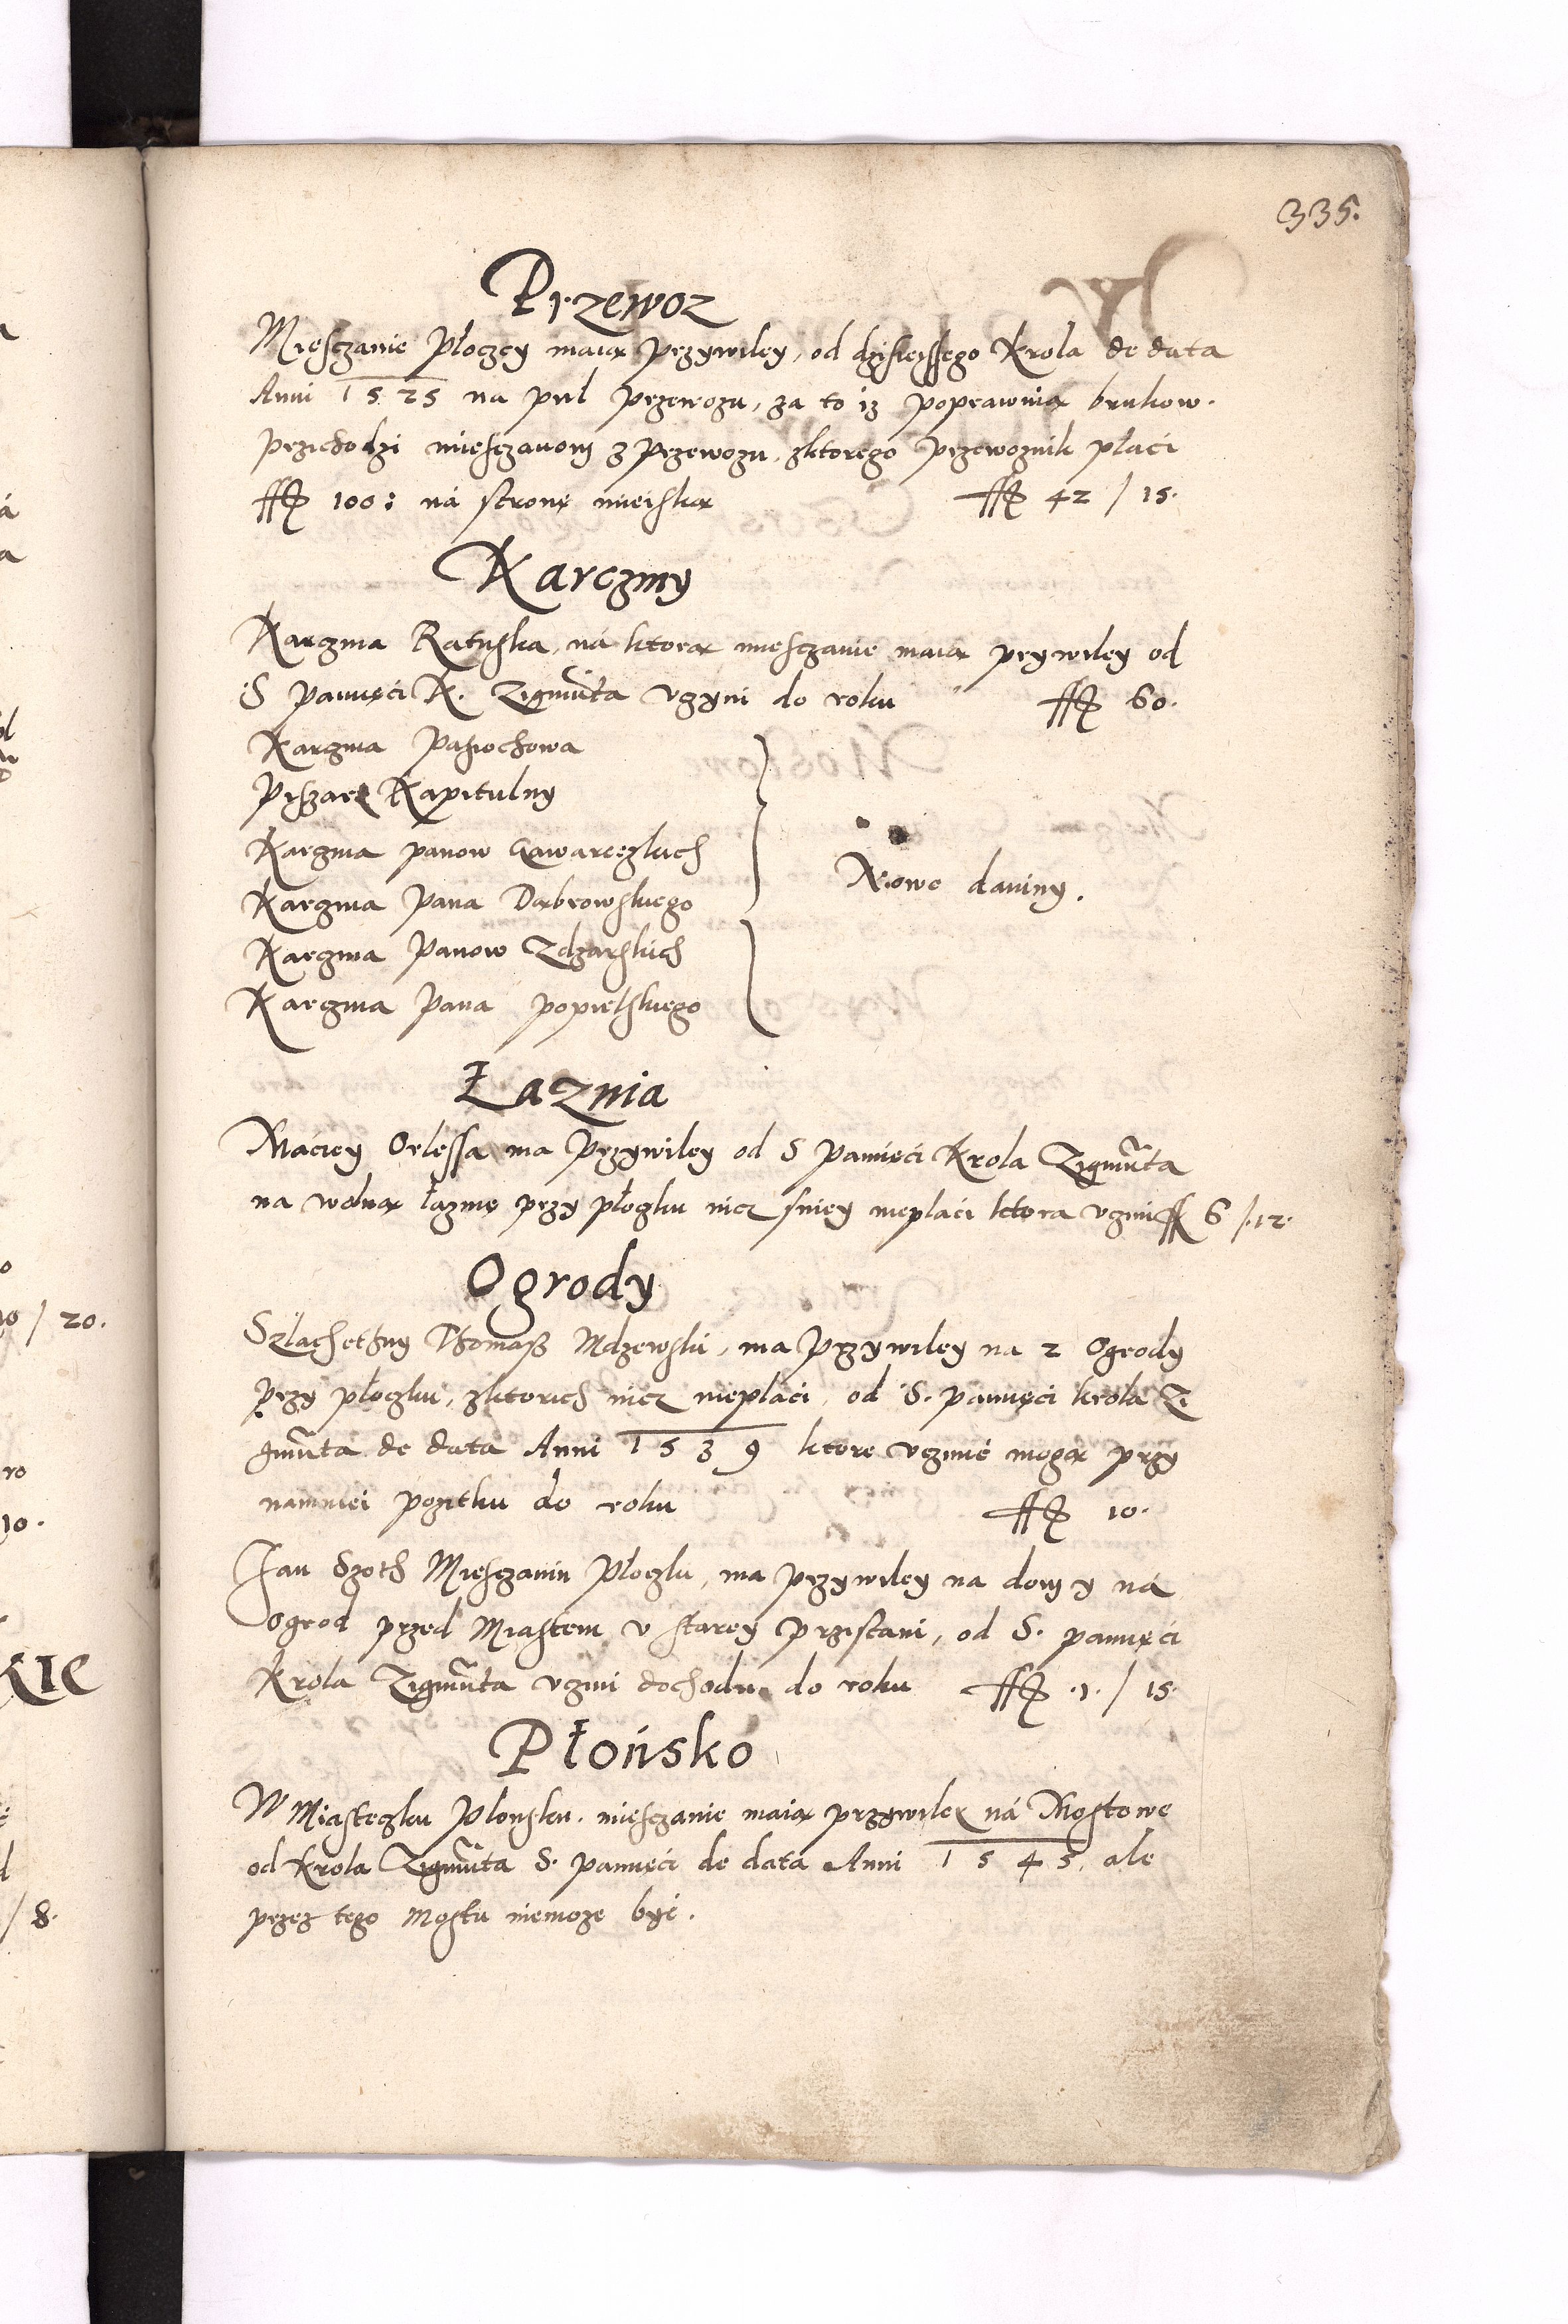 335.
Przewoz
Miesczanie Płoczcy maią Przywiley, od dzisieissego Krola de data
Anni 1525 na puł przewozu, za to iż poprawuią brukow.
Przichodzi miesczanom z Przewozu, zktorego przewoznik płaci
ff 100: ná stronę mieiską ff 42 / 15.
Karczmy
Karczma Ratuska, ná ktorą miesczanie maią prywiley od
S pamięći K. Zigmũta vczyni do roku ff 60.
Karczma Pasiochowa
Piszarz Kapitulny
Karczma panow Gawarczkich
Karczma Pana Dąbrowskiego
Nowe daniny.
Karczma Panow Zdzarskich
Karczma Pana popielskiego
Łaznia
Maciey Orlessa ma Przywiley od S Pamięći Krola Zigmũta
na wolną łaznię przy płoczku nicz sniey niepłaci ktora vczini ff 6 /.12.
Ogrody
Szlachethny Thomasz Mdzewski, ma Przywiley na 2 Ogrody
Przy płoczku, zktorich nicz niepłaci, od S. pamięci krola Zi
gmũta de data Anni 1539 ktore vczinić mogą przy
namniei pozitku do roku ff 10.
Jan Szoth Miesczanin Płoczki, ma przywiley na dom y ná
ogrod przed Miastem v starey Przistani, od S. pamięci
Krola Zigmũta vczini dochodu do roku ff .1. / 15.
Płońsko
W Miasteczku Płonsku. miesczanie maią przywiley ná Mostowe
od Krola Zigmũta S. pamięci de data Anni 1545, ale
przez tego Mostu niemoze być.
/ 20.
10.
KIE
/ 8.